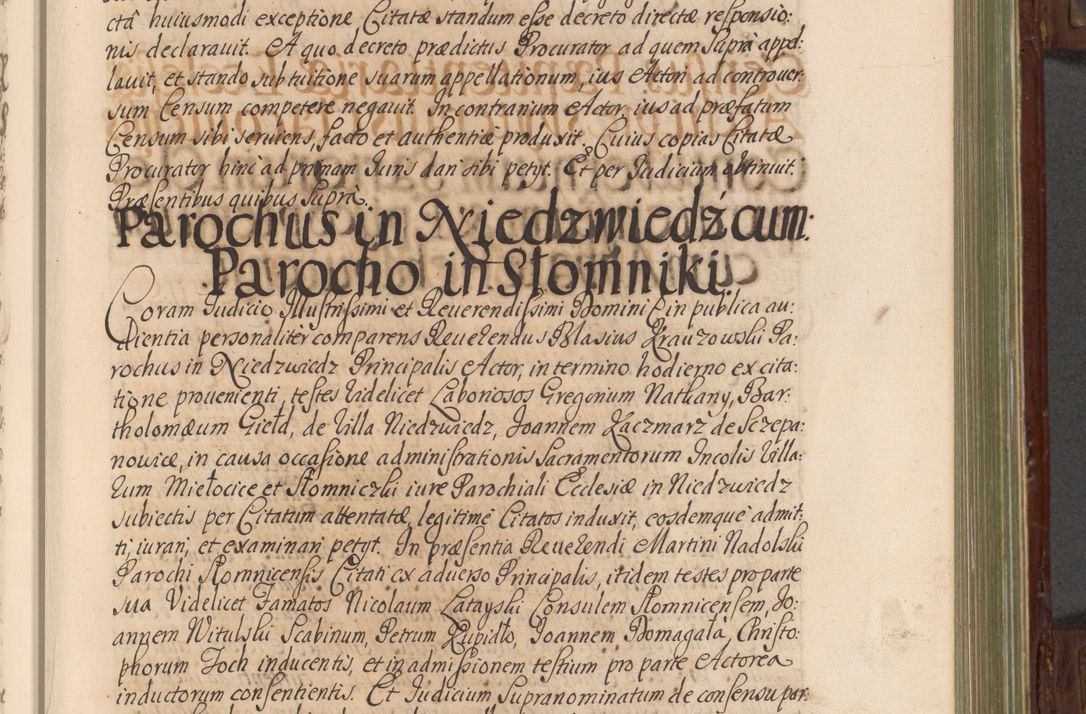 ctâ huiusmodi exceptione Citatæ standum esse decreto directæ responsio:
nis declarauit. A quo decreto prædictus Procurator ad quem Supra appel:
lauit, et stando sub tuitione suarum appellationum, ius Actori ad controuer:
sum Censum competere negauit. In contrarium Actor, ius ad præfatum
Censum sibi seruiens, facto et authenticè produxit. Cuius copias Citatæ
Procurator hinc ad primam Iuris dari sibi petyt. Et per Iudicium obtinuit.
Præsentibus quibus Supra.
Parochus in Niedzwiedź cum
Parocho in Słomniki.
Coram Iudicio Illustrissimi et Reuerendissimi Domini in publica au:
dientia personaliter comparens Reuerendus Blasius Krauzowski Pa:
rochus in Niedzwiedz Principalis Actor, in termino hodierno ex cita:
tione prouenienti, testes Videlicet Laboriosos Gregorium Nathany, Bar:
tholomæum Gield, de Villa Niedzwiedz, Joannem Kaczmarz de Sczepa:
nowice, in causa occasione administrationis Sacramentorum Incolis Villa:
rum Miełocice et Słomniczki iure Parochiali Ecclesiæ in Niedzwiedz
subiectis per Citatum attentatæ, legitime Citatos induxit, eosdemque admit:
ti, iurari, et examinari petyt. In præsentia Reuerendi Martini Nadolski
Parochi Slomnicensis Citati ex aduerso Principalis, itidem testes pro parte
sua Videlicet Famatos Nicolaum Latayski Consulem Slomnicensem, Jo:
annem Witulski Scabinum, Petrum Kupidło, Joannem Domagała, Christo:
phorum Joch inducentis, et in admissionem testium pro parte Actorea
inductorum consentientis. Et Iudicium Supranominatum de consensu par: